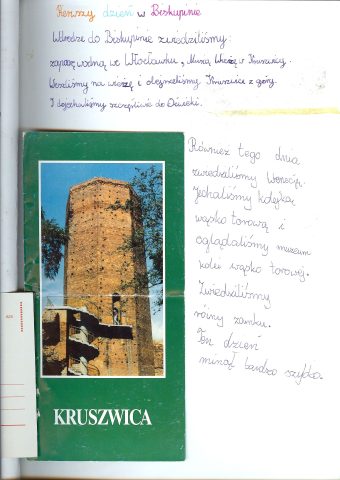 Pierwszy dzień w Biskupinie
W drodze do Biskupina zwiedziliśmy:
zaporę wodną we Włocławku, Mysią Wieżę w Kruszwicy.
Weszliśmy na wieżę i obejrzeliśmy Kruszwicę z góry.
I dojechaliśmy szczęśliwie do
Również tego dnia
zwiedzaliśmy Wenecję.
Jechaliśmy kolejką
wąsko torową i
oglądaliśmy muzeum
kolei wąsko torowej.
Zwiedziliśmy
ruiny zamku.
Ten dzień
minął bardzo szybko.
KRUSZWICA